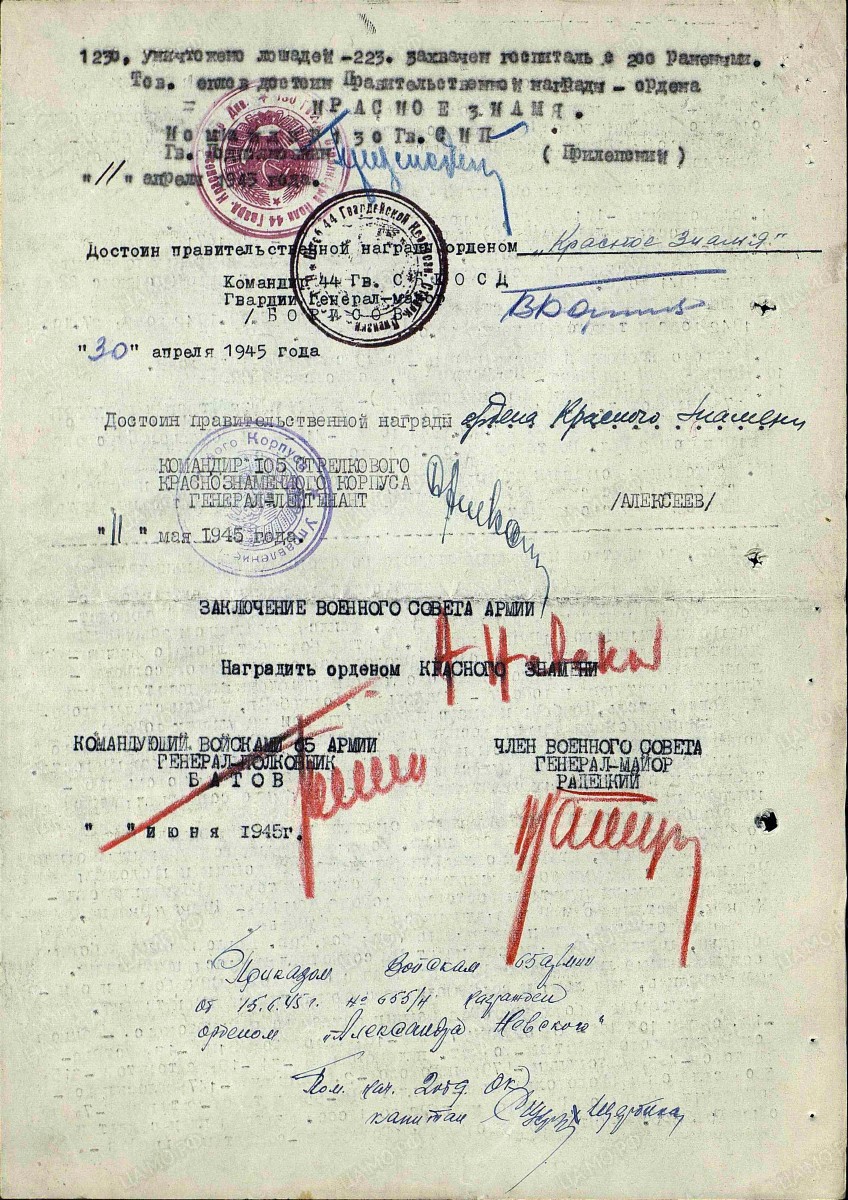 1230, уничтожено лошадей -223. захвачен госпиталь с 200 ранеными.
Тов. достоин Правительственной награды - ордена
КРАСНОЕ ЗНАМЯ.
130 Гв. СКП
Гв. Подполковник ( Прилепский )
"11" апреля 1945 года.
Достоин правительственной награды орденом „Красное Знамя"
Командир 44 Гв. С К О С Д
Гвардии Генерал-майор
/ Б О Р И С О В
"30" апреля 1945 года
Достоин правительственной награды ордена Красного Знамени
КОМАНДИР 105 СТРЕЛКОВОГО
КРАСНОЗНАМЕННОГО КОРПУСА
ГЕНЕРАЛ-ЛЕЙТИНАНТ /АЛЕКСЕЕВ/
"11" мая 1945 года.
Корпуса
Управление
ЗАКЛЮЧЕНИЕ ВОЕННОГО СОВЕТА АРМИИ
А Невский
Наградить орденом КРАСНОГО ЗНАМЕНИ
КОМАНДУЮЩИЙ ВОЙСКАМИ 65 АРМИИ ЧЛЕН ВОЕННОГО СОВЕТА
ГЕНЕРАЛ-ПОЛКОВНИК ГЕНЕРАЛ-МАЙОР
Б А Т О В РАДЕЦКИЙ
" " июня 1945г.
Приказом Войскам 65 армии
от 15.6.45 г. № 655/н награжден
орденом „Александра Невского"
Пом. нач. 2 отд. ОК
капитан